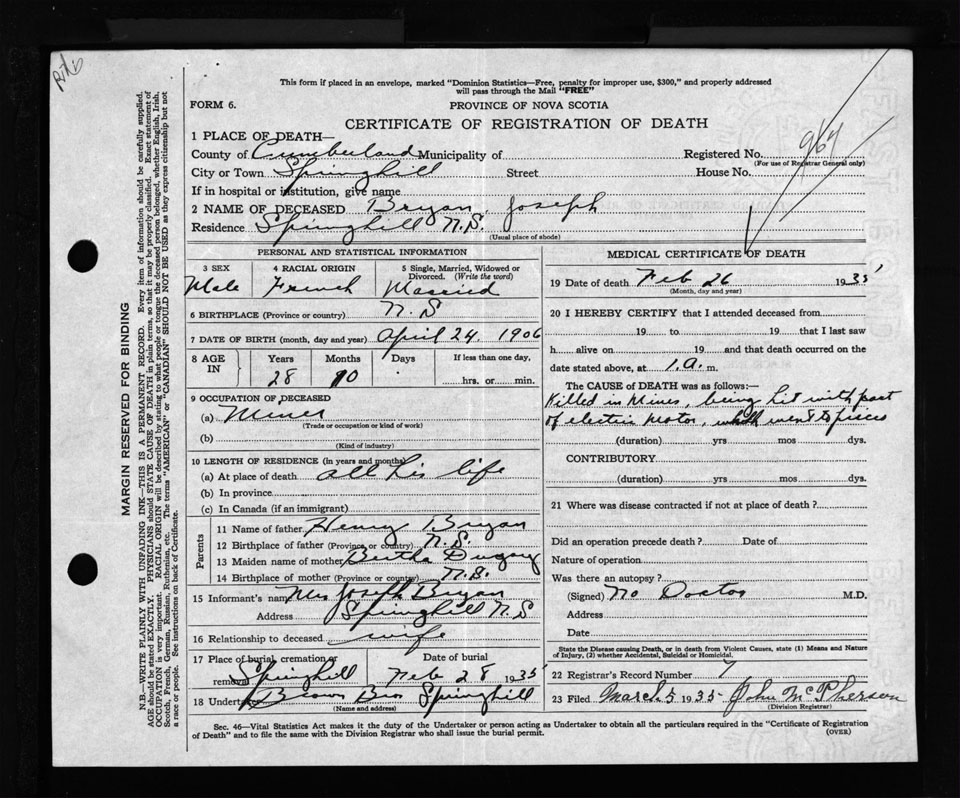 This form if placed in an envelope, marked "Dominion Statistics—Free, penalty for improper use, $300," and properly addressed
will pass through the Mail "FREE"
FORM 6.
PROVINCE OF NOVA SCOTIA
CERTIFICATE OF REGISTRATION OF DEATH
1 PLACE OF DEATH—
County of Cumberland Municipality of Registered No. 967
(For use of Registrar General only)
City or Town Springhill Street House No.
If in hospital or institution, give name
2 NAME OF DECEASED Bryan, Joseph
Residence Springhill N.S.
(Usual place of abode)
PERSONAL AND STATISTICAL INFORMATION
3 SEX 4 RACIAL ORIGIN 5 Single, Married, Widowed or
Divorced. (Write the word)
Male French Married
6 BIRTHPLACE (Province or country) N.S
7 DATE OF BIRTH (month, day and year) April 24, 1906
8 AGE IN Years Months Days If less than one day,
28 10 hrs. or min.
9 OCCUPATION OF DECEASED
(a) Miner
(Trade or occupation or kind of work)
(b)
(Kind of industry)
10 LENGTH OF RESIDENCE (in years and months)
(a) At place of death all his life
(b) In province
(c) In Canada (if an immigrant)
Parents
11 Name of father Henry Bryan
12 Birthplace of father (Province or country) N.S.
13 Maiden name of mother Bertha
14 Birthplace of mother (Province or country) N.S.
15 Informant's name Mrs Joseph Bryan
Address Springhill N.S
16 Relationship to deceased wife
17 Place of burial, cremation or removal Date of burial
Springhill Feb 28 1935
18 Undertaker Brown Bros Springhill
(Name and address)
MEDICAL CERTIFICATE OF DEATH
19 Date of death Feb 26 1935
(Month, day and year)
20 I HEREBY CERTIFY that I attended deceased from
19 to 19 that I last saw
h alive on 19 and that death occurred on the
date stated above, at 1.a. m.
The CAUSE of DEATH was as follows:—
Killed in Mines, being hit with part
of electric motor, which went to pieces
(duration) yrs mos dys.
CONTRIBUTORY
(duration) yrs mos dys.
21 Where was disease contracted if not at place of death?
Did an operation precede death? Date of
Nature of operation
Was there an autopsy?
(Signed) No Doctor M.D.
Address
Date
State the Disease causing Death, or in death from Violent Causes, state (1) Means and Nature
of Injury, (2) whether Accidental, Suicidal or Homicidal.
22 Registrar's Record Number 7
23 Filed March 5 1935 John McPherson
(Division Registrar)
Sec. 46—Vital Statistics Act makes it the duty of the Undertaker or person acting as Undertaker to obtain all the particulars required in the "Certificate of Registration
of Death" and to file the same with the Division Registrar who shall issue the burial permit.
(OVER)
MARGIN RESERVED FOR BINDING
N.B.—WRITE PLAINLY WITH UNFADING INK—THIS IS A PERMANENT RECORD. Every item of information should be carefully supplied.
AGE should be stated EXACTLY. PHYSICIANS should STATE CAUSE OF DEATH in plain terms, so that it may be properly classified. Exact statement of
OCCUPATION is very important. RACIAL ORIGIN will be described by stating to what people or tongue the deceased person belonged, whether English, Irish,
Scotch, French, German, Russian, Ruthenian, etc. The terms "AMERICAN" or "CANADIAN" SHOULD NOT BE USED as they express citizenship but not
a race or people. See instructions on back of Certificate.